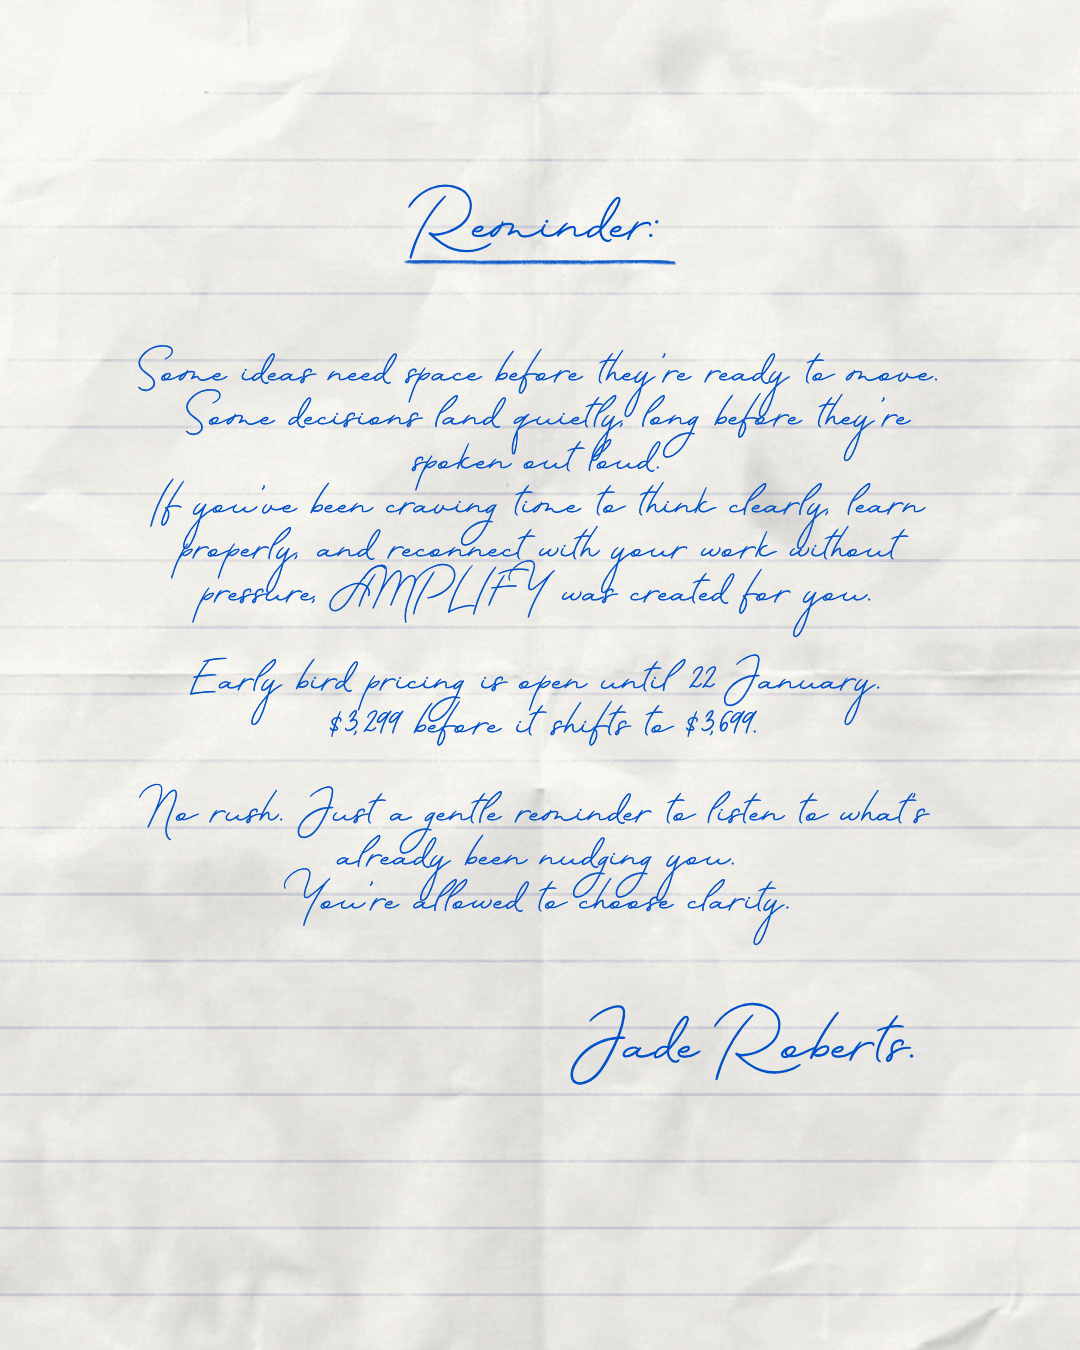 Reminder:
Some ideas need space before they're ready to move.
Some decisions land quietly, long before they're
spoken out loud.
If you've been craving time to think clearly, learn
properly, and reconnect with your work without
pressure, AMPLIFY was created for you.
Early bird pricing is open until 22 January.
$3,299 before it shifts to $3,699.
No rush. Just a gentle reminder to listen to what's
already been nudging you.
You're allowed to choose clarity.
Jade Roberts.